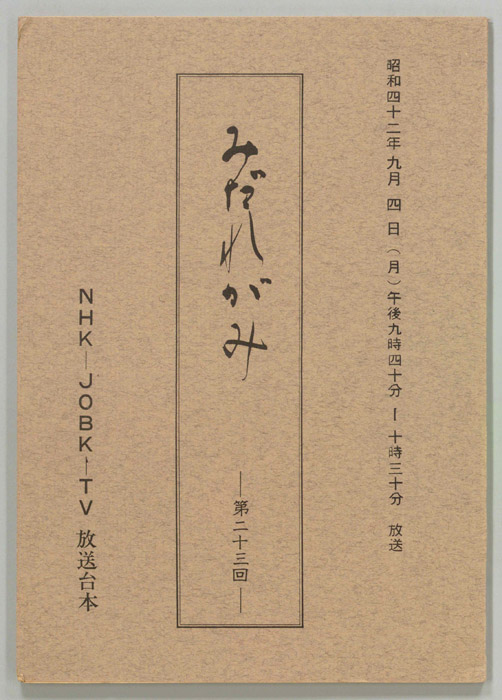 昭和四十二年九月四日(月)午後九時四十分ー十時三十分 放送
みだれがみ
―第二十三回―
NHK―JOBK―TV 放送台本